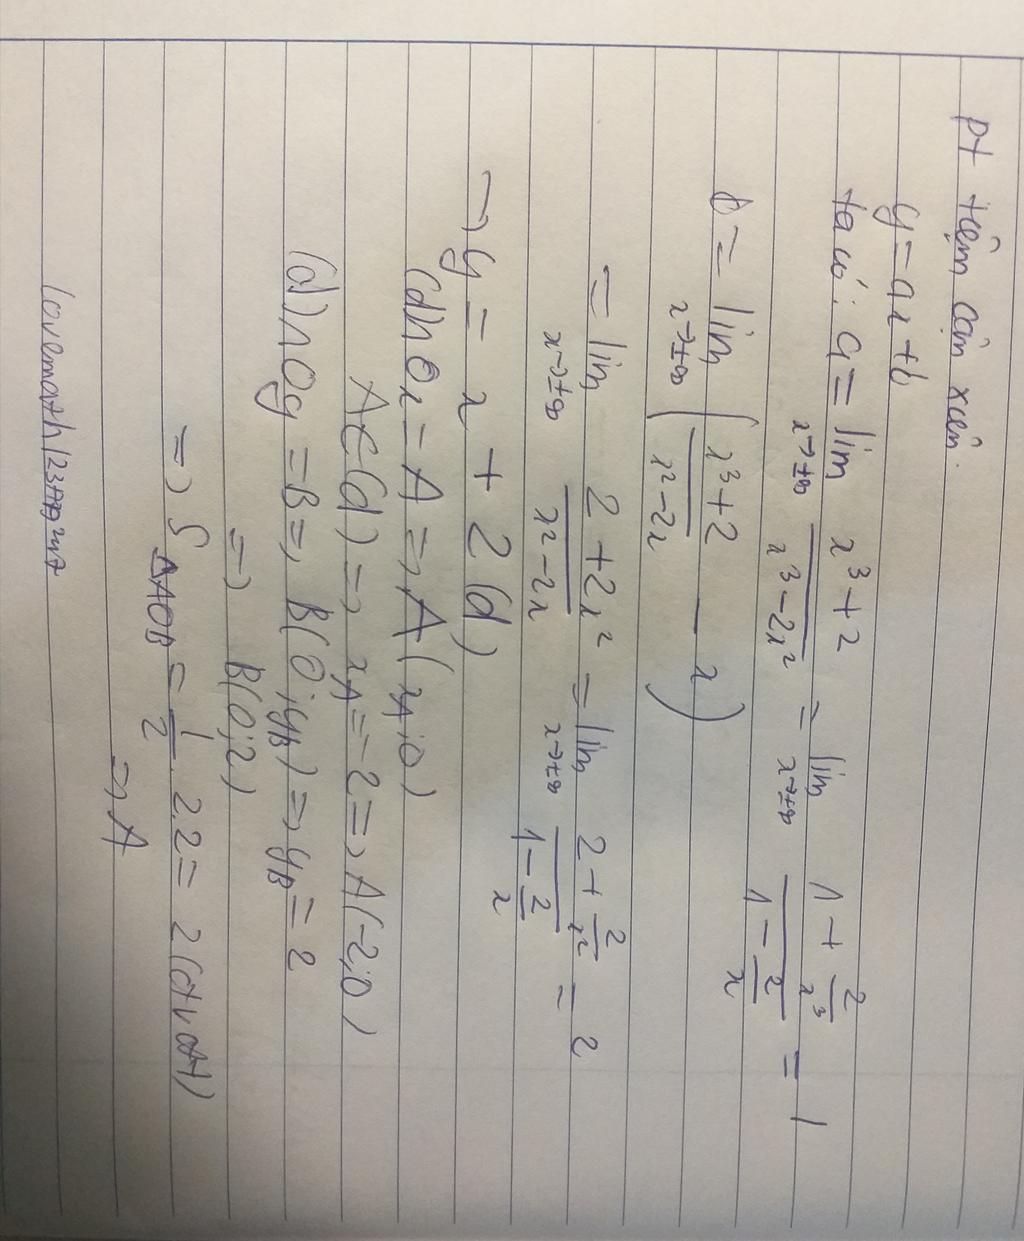 pt tiệm cận xiên.
y = ax + b
ta có: a = lim x→±∞ (x³ + 2)/(x³ - 2x²) = lim x→±∞ (1 + 2/x³)/(1 - 2/x) = 1
b = lim x→±∞ ( (x³ + 2)/(x² - 2x) - x )
= lim x→±∞ (2 + 2x²)/(x² - 2x) = lim x→±∞ (2 + 2/x²)/(1 - 2/x) = 2
→ y = x + 2 (d)
(d) ∩ Ox = A => A (xA; 0)
A ∈ (d) => xA = -2 => A(-2; 0)
(d) ∩ Oy = B => B(0; yB) => yB = 2
=> B(0; 2)
=> S ΔAOB = 1/2 . 2.2 = 2 (đvdt)
=> A